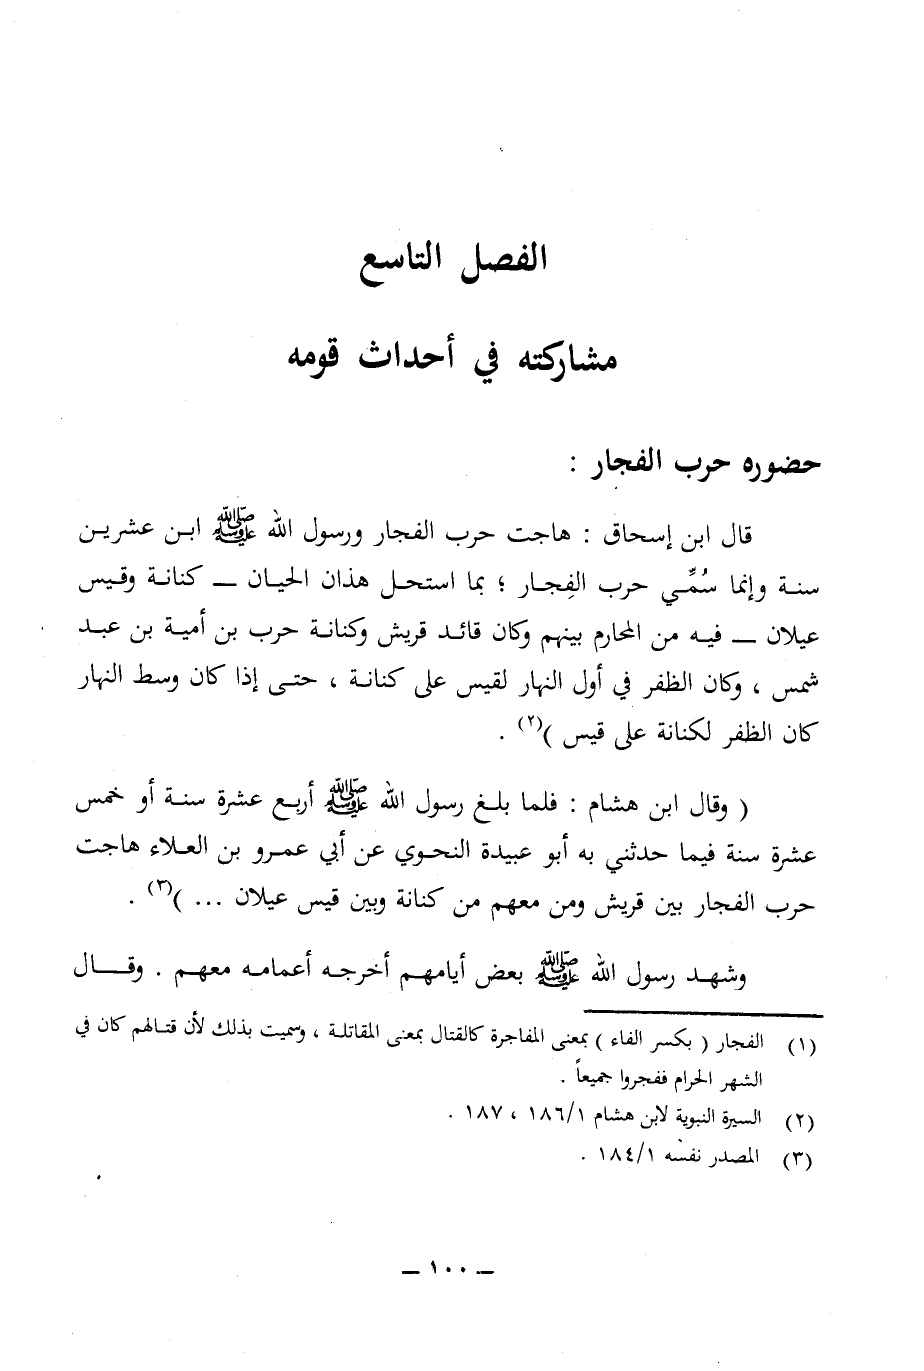 الفصل التاسع
مشاركته في أحداث قومه
حضوره حرب الفجار :
قال ابن إسحاق : هاجت حرب الفجار ورسول الله ﷺ ابن عشرين
سنة وإنما سُمِّي حرب الفِجار ؛ بما استحل هذان الحيان ـ كنانة وقيس
عيلان ـ فيه من المحارم بينهم وكان قائد قريش وكنانة حرب بن أمية بن عبد
شمس ، وكان الظفر في أول النهار لقيس على كنانة ، حتى إذا كان وسط النهار
كان الظفر لكنانة على قيس )(٢) .
( وقال ابن هشام : فلما بلغ رسول الله ﷺ أربع عشرة سنة أو خمس
عشرة سنة فيما حدثني به أبو عبيدة النحوي عن أبي عمرو بن العلاء هاجت
حرب الفجار بين قريش ومن معهم من كنانة وبين قيس عيلان ... )(٣) .
وشهد رسول الله ﷺ بعض أيامهم أخرجه أعمامه معهم . وقال
(١) الفجار ( بكسر الفاء ) بمعنى المفاجرة كالقتال بمعنى المقاتلة ، وسميت بذلك لأن قتالهم كان في
الشهر الحرام ففجروا جميعاً .
(٢) السيرة النبوية لابن هشام ١٨٦/١ ، ١٨٧ .
(٣) المصدر نفسه ١٨٤/١ .
ـ ١٠٠ ـ